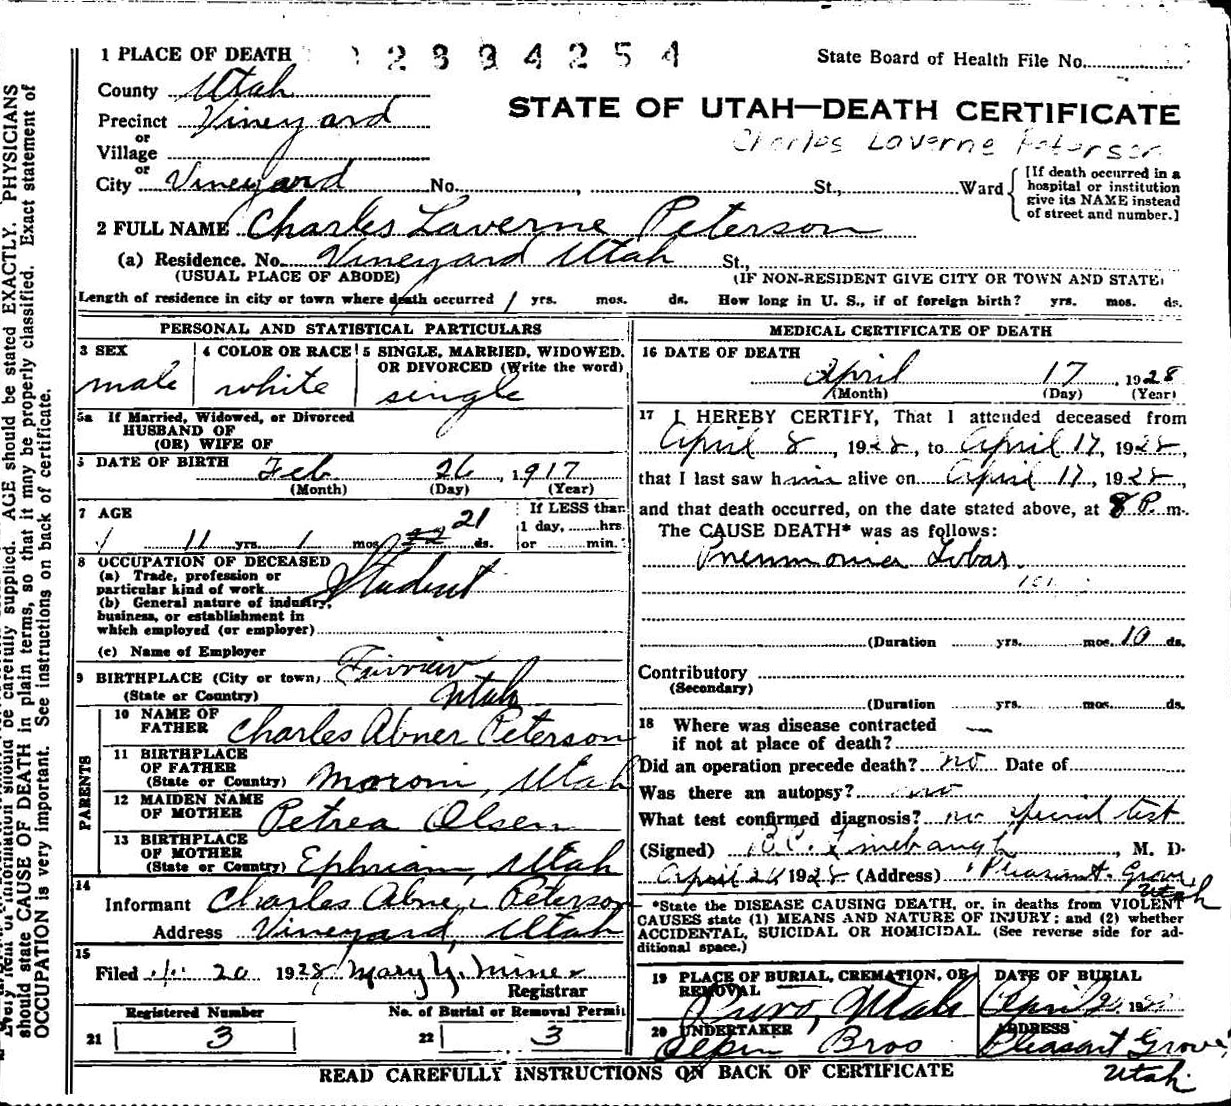 1 PLACE OF DEATH
2894254
State Board of Health File No.
County Utah
STATE OF UTAH—DEATH CERTIFICATE
Precinct Vineyard
or
Village
Charles Laverne Peterson
or
City Vineyard No. , St., Ward
[If death occurred in a
hospital or institution
give its NAME instead
of street and number.]
2 FULL NAME Charles Laverne Peterson
(a) Residence. No. Vineyard Utah St.,
(USUAL PLACE OF ABODE) (IF NON-RESIDENT GIVE CITY OR TOWN AND STATE)
Length of residence in city or town where death occurred 1 yrs. mos. ds. How long in U. S., if of foreign birth? yrs. mos. ds.
PERSONAL AND STATISTICAL PARTICULARS
3 SEX
male
4 COLOR OR RACE
white
5 SINGLE, MARRIED, WIDOWED,
OR DIVORCED (Write the word)
single
5a If Married, Widowed, or Divorced
HUSBAND OF
(OR) WIFE OF
DATE OF BIRTH Feb 26, 1917
(Month) (Day) (Year)
7 AGE
11 yrs. 1 mos. 21 ds.
If LESS than
1 day, hrs.
or min.
8 OCCUPATION OF DECEASED
(a) Trade, profession or
particular kind of work Student
(b) General nature of industry,
business, or establishment in
which employed (or employer)
(c) Name of Employer
9 BIRTHPLACE (City or town) Fairview
(State or Country) Utah
PARENTS
10 NAME OF
FATHER Charles Abner Peterson
11 BIRTHPLACE
OF FATHER
(State or Country) Moroni, Utah
12 MAIDEN NAME
OF MOTHER Petrea Olsen
13 BIRTHPLACE
OF MOTHER
(State or Country) Ephriam, Utah
14
Informant Charles Abner Peterson
Address Vineyard, Utah
15
Filed 20 1928 Mary Y.
Registrar
Registered Number
21 3
No. of Burial or Removal Permit
22 3
MEDICAL CERTIFICATE OF DEATH
16 DATE OF DEATH
April 17, 1928
(Month) (Day) (Year)
17 I HEREBY CERTIFY, That I attended deceased from
April 8, 1928, to April 17, 1928,
that I last saw him alive on April 17, 1928,
and that death occurred, on the date stated above, at 8 P. m.
The CAUSE DEATH* was as follows:
Pneumonia Lobar
101
(Duration yrs. mos. 10 ds.
Contributory
(Secondary)
(Duration yrs. mos. ds.
18 Where was disease contracted
if not at place of death? —
Did an operation precede death? no Date of
Was there an autopsy? no
What test confirmed diagnosis? no special test
(Signed) B.C. Linebaugh, M. D.
April 1928 (Address) Pleasant Grove
Utah
*State the DISEASE CAUSING DEATH, or, in deaths from VIOLENT
CAUSES state (1) MEANS AND NATURE OF INJURY; and (2) whether
ACCIDENTAL, SUICIDAL OR HOMICIDAL. (See reverse side for ad-
ditional space.)
19 PLACE OF BURIAL, CREMATION, OR
REMOVAL
Provo, Utah
DATE OF BURIAL
April
20 UNDERTAKER
Olpin Bros
ADDRESS
Pleasant Grove,
Utah.
READ CAREFULLY INSTRUCTIONS ON BACK OF CERTIFICATE
should be carefully supplied. AGE should be stated EXACTLY. PHYSICIANS
should state CAUSE OF DEATH in plain terms, so that it may be properly classified. Exact statement of
OCCUPATION is very important. See instructions on back of certificate.